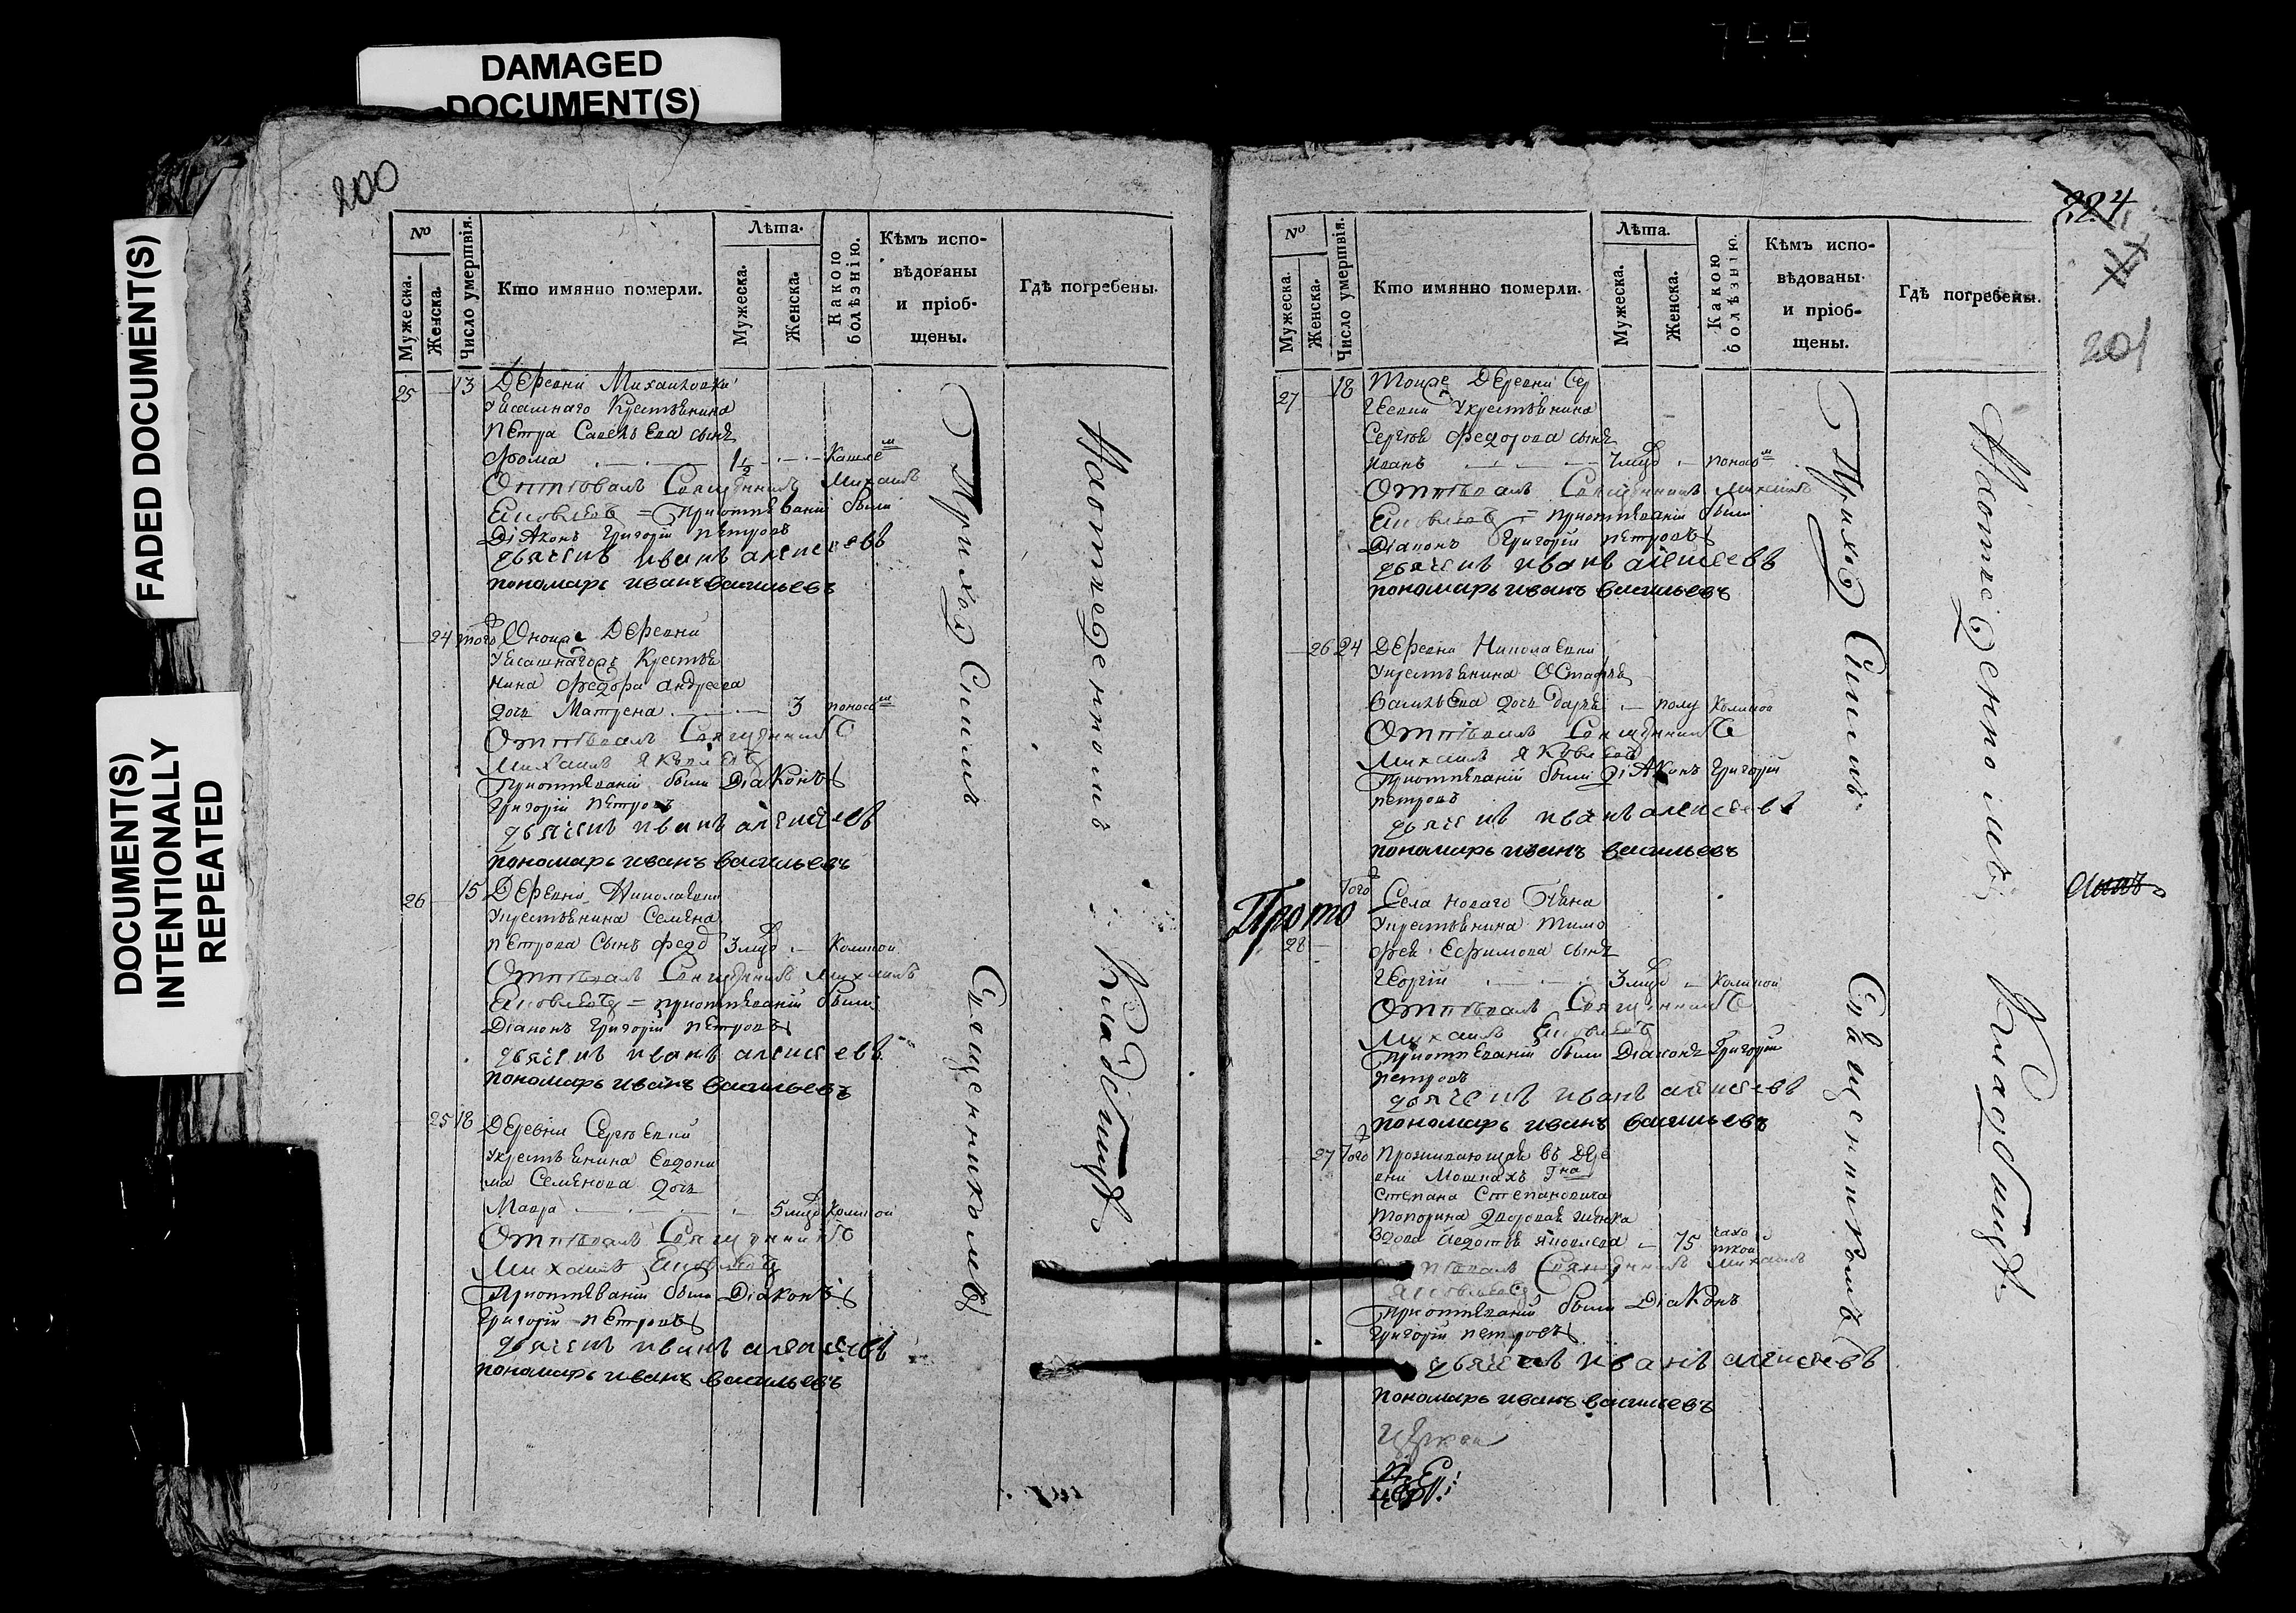 DAMAGED
DOCUMENT(S)
FADED DOCUMENT(S)
DOCUMENT(S)
INTENTIONALLY
REPEATED
200
№
Мужеска.
Женска.
Число умертвія.
Кто имянно померли.
Лѣта.
Мужеска.
Женска.
Какою
болѣзнію.
Кѣмъ испо-
вѣдованы
и пріоб-
щены.
Гдѣ погребены.
25 13 Деревни Михайловки
Крестьянина
Петра Савельева сынъ
Фома 1½ Кашлемъ
Отпѣвалъ Священникъ Михаилъ
Яковлевъ = При отпѣваніи были
Діаконъ Григорій Петровъ
дьячекъ иванъ алексеевъ
пономарь иванъ васильевъ
24 того Оной же Деревни
Крестья
нина Федора Андреева
дочь Матрена 3 поносомъ
Отпѣвалъ Священникъ
Михаилъ Яковлевъ
При отпѣваніи были Діаконъ
Григорій Петровъ
дьячекъ иванъ алексеевъ
пономарь иванъ васильевъ
26 15 Деревни Николаевки
Крестьянина Семена
Петрова Сынъ Федо 3 Коликой
Отпѣвалъ Священникъ Михаилъ
Яковлевъ = При отпѣваніи были
Діаконъ Григорій Петровъ
дьячекъ иванъ алексеевъ
пономарь иванъ васильевъ
25 18 Деревни Сергіевки
Крестьянина Евдоки
ма Семенова дочь
Мавра 5 Коликой
Отпѣвалъ Священникъ
Михаилъ Яковлевъ
При отпѣваніи были Діаконъ
Григорій Петровъ
дьячекъ иванъ алексеевъ
пономарь иванъ васильевъ
Приходскимъ Священникомъ
На отведенномъ Кладбищѣ
224
201
№
Мужеска.
Женска.
Число умертвія.
Кто имянно померли.
Лѣта.
Мужеска.
Женска.
Какою
болѣзнію.
Кѣмъ испо-
вѣдованы
и пріоб-
щены.
Гдѣ погребены.
27 18 Тойже Деревни Сер
гіевки Крестьянина
Сергѣя Федорова сынъ
Иванъ поносомъ
Отпѣвалъ Священникъ Михаилъ
Яковлевъ = При отпѣваніи были
Діаконъ Григорій Петровъ
дьячекъ иванъ алексеевъ
пономарь иванъ васильевъ
26 24 Деревни Николаевки
Крестьянина Остафья
Васильева дочь Дарья полу Коликой
Отпѣвалъ Священникъ
Михаилъ Яковлевъ
При отпѣваніи были Діаконъ Григорій
Петровъ
дьячекъ иванъ алексеевъ
пономарь иванъ васильевъ
Прото
28 Того Села Новаго
Крестьянина Тимо
фея Ефимова сынъ
Георгій 3 Коликой
Отпѣвалъ Священникъ
Михаилъ Яковлевъ
При отпѣваніи были Діаконъ Григорій
Петровъ
дьячекъ иванъ алексеевъ
пономарь иванъ васильевъ
27 Того Проживающая въ Дере
вни Мошкахъ Гна
Степана Степановича
Топорина дворовая женка
Вдова Федотья Яковлева 75 чахо
ткой
Отпѣвалъ Священникъ Михаилъ
Яковлевъ
При отпѣваніи были Діаконъ
Григорій Петровъ
дьячекъ иванъ алексеевъ
пономарь иванъ васильевъ
Приходскимъ Священникомъ
На отведенномъ Кладбищѣ